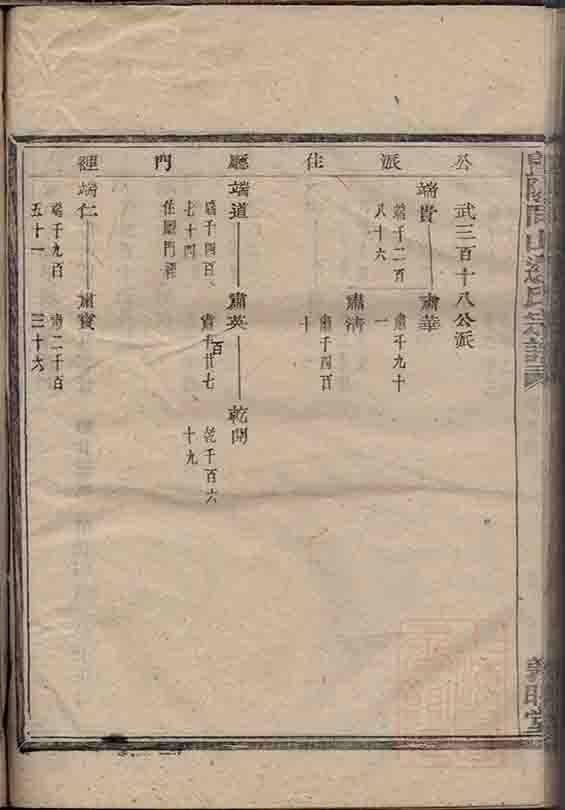 公派住廳門裡
武三百十八公派
端貴 肅華
端千二百八十六
肅千九十一
肅清
肅千四百十
端道 肅英 乾開
端千四百七十四
住廳門裡
肅千百廿七
乾千百六十九
端仁 肅寶
端千九百五十一
肅二千百三十六